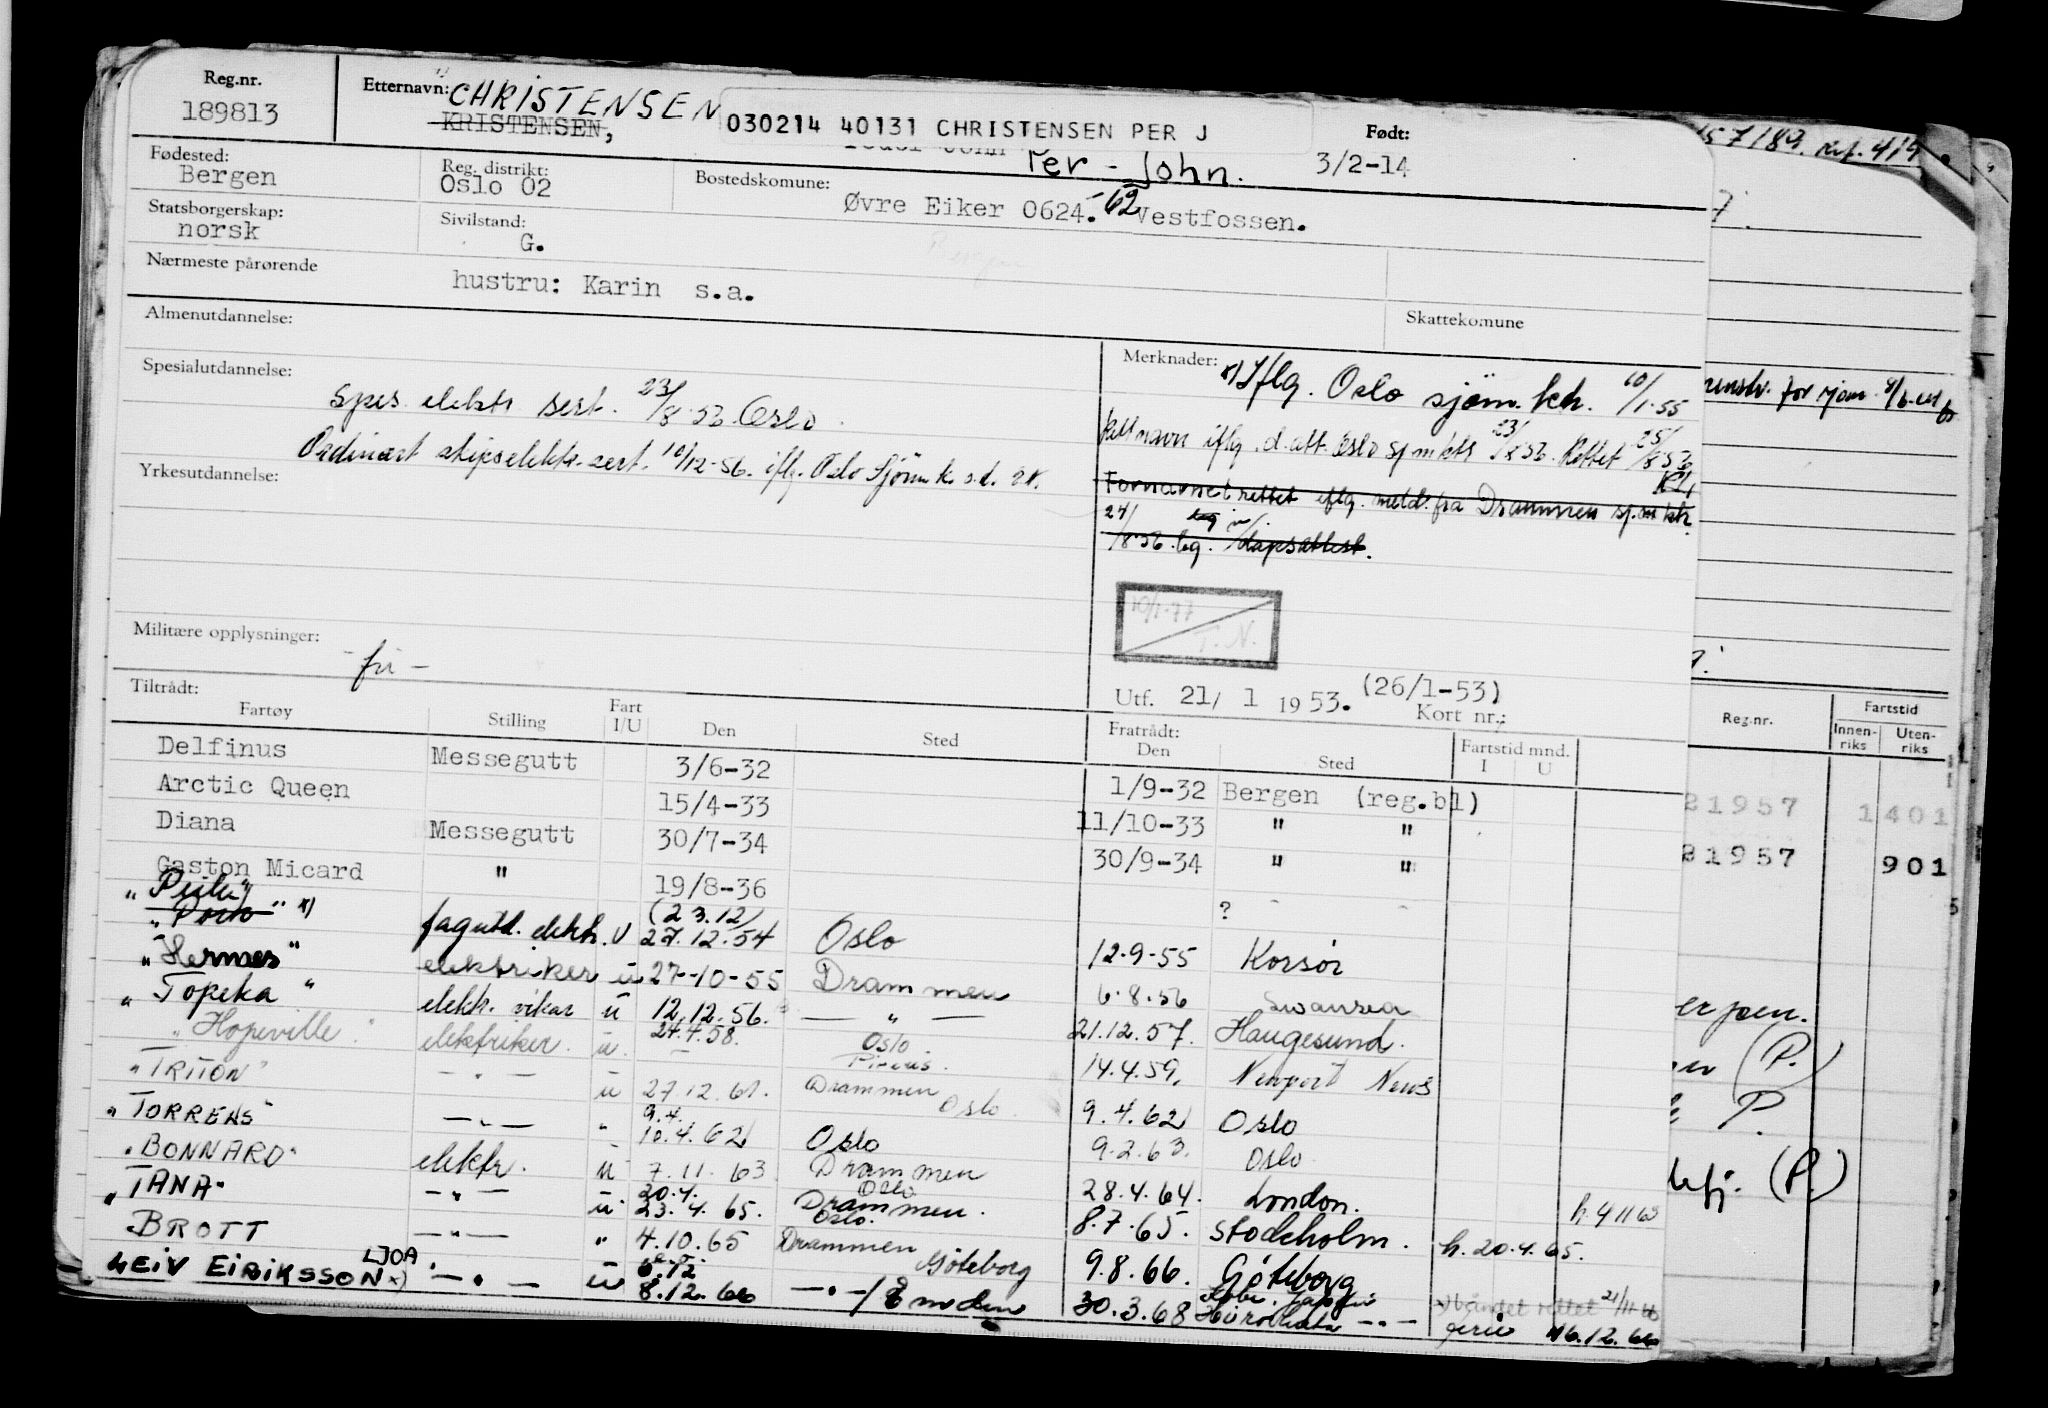 Reg.nr.
189813
Etternavn: CHRISTENSEN
KRISTENSEN,
030214 40131 CHRISTENSEN PER J
Per - John.
Født:
3/2-14
Fødested:
Bergen
Reg. distrikt:
Oslo 02
Bostedskomune:
Øvre Eiker 0624. -62 Vestfossen.
Statsborgerskap:
norsk
Sivilstand:
G.
Nærmeste pårørende
hustru: Karin s.a.
Skattekomune
Almenutdannelse:
Spesialutdannelse:
Spes. elektr sert. 23/8-56 Oslo.
Ordinært skipselektr. sert. 10/12-56. iflg. Oslo Sjøm.k. s.d.
Yrkesutdannelse:
Merknader:
x) Iflg. Oslo sjøm.ktr. 10/1-55
navn iflg. d.att. Oslo sjmktr 23/8 56. Rettet 25/8 56
Fornavnet rettet iflg. meld. fra Drammen sj.m ktr.
24/8.56.
10/1-77
T.N.
Militære opplysninger:
- fri -
Utf. 21/ 1 1953. (26/1-53)
Kort nr.:
Tiltrådt:
Fartøy Stilling Fart I/U Den Sted
Fratrådt:
Den Sted Fartstid mnd. I U
Delfinus Messegutt 3/6-32 1/9-32 Bergen (reg.bl)
Arctic Queen 15/4-33 11/10-33 " "
Diana Messegutt 30/7-34 30/9-34 " "
Gaston Micard " 19/8-36 ?
(23.12)
fagutd. elektr. U 27.12.54 Oslo 12.9-55 Korsør
"Hermes" elektriker u 27-10-55 Drammen 6.8.56 Swansea
"Topeka" elektr. vikar u 12.12.56. — " — 21.12.57. Haugesund.
"Hopeville" elektriker. u. 24.4.58. Oslo. 14.4.59. Newport News
Pireus.
"TRITON" — " — u 27.12.61. Drammen Oslo. 9.4.62 Oslo
9.4.
"TORRENS" — " — " 10.4.62 Oslo 9.2.63. Oslo
"BONNARD" elektr. u 7.11.63 Drammen 28.4.64. London. h. 4 11 63
20.4. Oslo
"TANA" — " — u 23.4.65. Drammen. 8.7.65. Stockholm. h. 20.4.65.
Oslo.
BROTT — " — " 4.10.65 Drammen Göteborg 9.8.66. Göteborg
LEIV EIRIKSSON x) — " — u 8.12.66 — " — / Emden 30.3.68
LJOA
ferie 16.12.66
Reg.nr.
Fartstid
Innenriks
Utenriks
21957 1 401
21957 901
(P.)
P.
(P.)